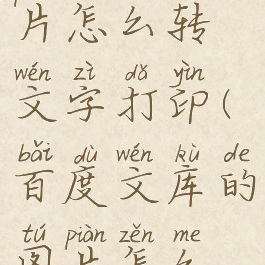 片怎么转
wén zì dǎ yìn
文字打印(
bǎi dù wén kù de
百度文库的
tú piàn zěn me
图片怎么